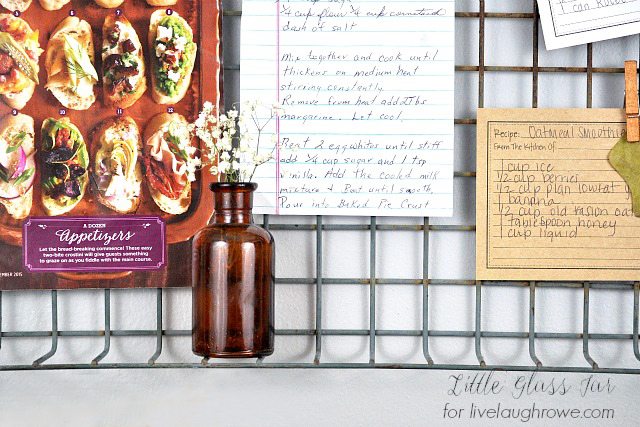 5
6
7
8
9
10
11
12
A DOZEN
Appetizers
Let the bread-breaking commence! These easy
two-bite crostini will give guests something
to graze on as you fiddle with the main course.
EMBER 2015
1/4 cup flour 1/4 cup cornstarch
dash of salt
Mix together and cook until
thickens on medium heat
stirring constantly.
Remove from heat add 2 Tbs
margarine. Let cool.
Beat 2 egg whites until stiff
add 1/4 cup sugar and 1 tsp
vinilla. Add the cooled milk
mixture & Beat until smooth.
Pour into Baked Pie Crust
can
Recipe: Oatmeal Smoothie
From The Kitchen of
1 cup ice
1/2 cup berries
1/2 cup plain lowfat y
1 banana
1/2 cup old fasion oat
1 tablespoon honey
1 cup liquid
Little Glass Jar
for livelaughrowe.com!